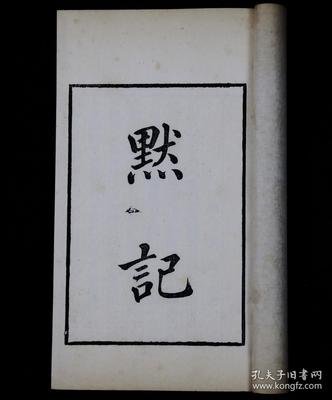 默記
孔夫子旧书网
www.kongfz.com